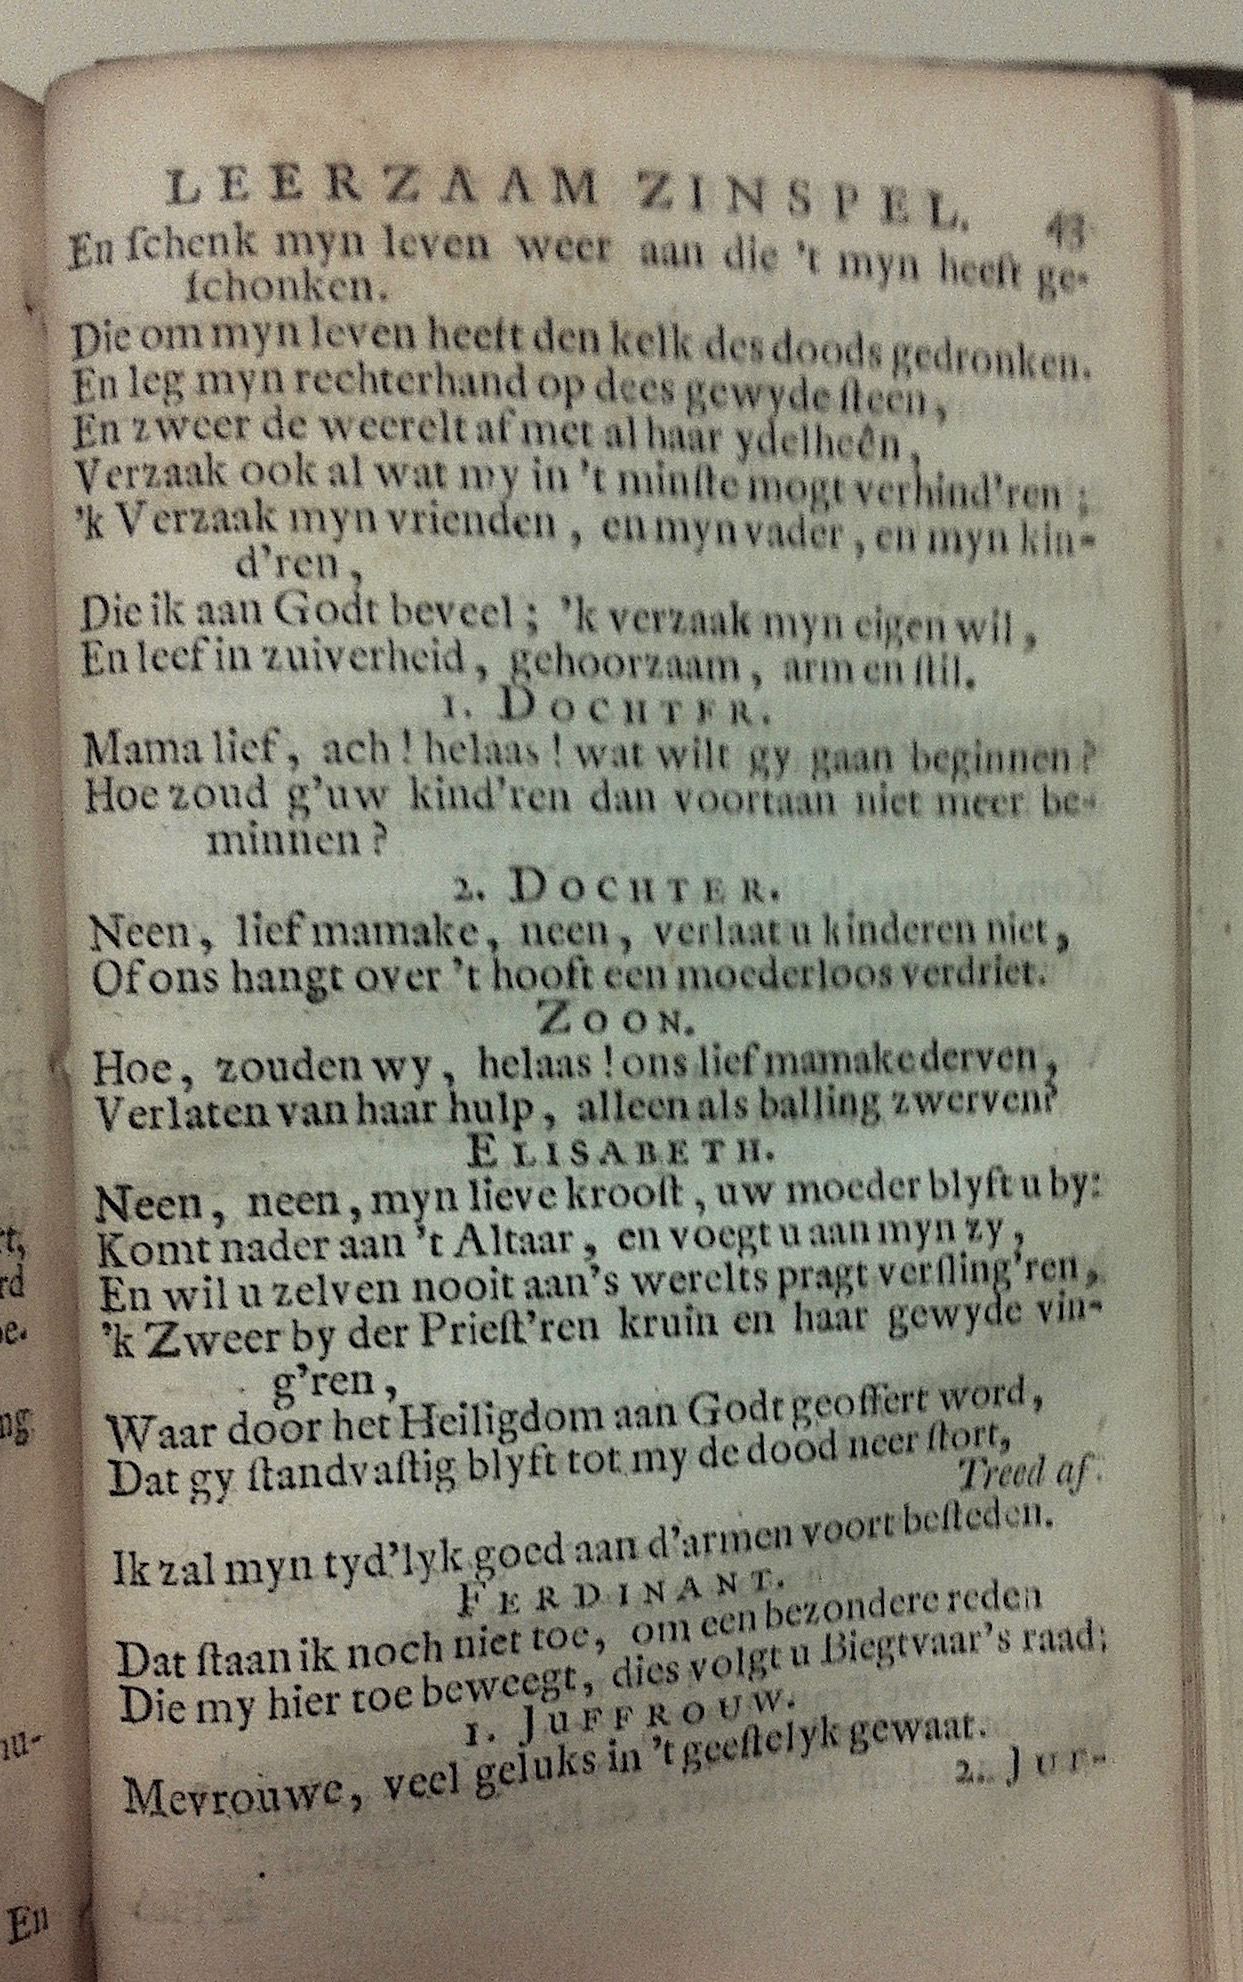 LEERZAAM ZINSPEL. 43
En ſchenk myn leven weer aan die 't myn heeft ge-
ſchonken.
Die om myn leven heeft den kelk des doods gedronken.
En leg myn rechterhand op dees gewyde ſteen,
En zweer de weerelt af met al haar ydelheên,
Verzaak ook al wat my in 't minſte mogt verhind'ren;
'k Verzaak myn vrienden, en myn vader, en myn kin-
d'ren,
Die ik aan Godt beveel; 'k verzaak myn eigen wil,
En leef in zuiverheid, gehoorzaam, arm en ſtil.
1. DOCHTER.
Mama lief, ach! helaas! wat wilt gy gaan beginnen?
Hoe zoud g'uw kind'ren dan voortaan niet meer be-
minnen?
2. DOCHTER.
Neen, lief mamake, neen, verlaat u kinderen niet,
Of ons hangt over 't hooft een moederloos verdriet.
ZOON.
Hoe, zouden wy, helaas! ons lief mamake derven,
Verlaten van haar hulp, alleen als balling zwerven?
ELISABETH.
Neen, neen, myn lieve krooſt, uw moeder blyft u by:
Komt nader aan 't Altaar, en voegt u aan myn zy,
En wil u zelven nooit aan's werelts pragt verſling'ren,
'k Zweer by der Prieſt'ren kruin en haar gewyde vin-
g'ren,
Waar door het Heiligdom aan Godt geoffert word,
Dat gy ſtandvaſtig blyft tot my de dood neer ſtort,
Treed af.
Ik zal myn tyd'lyk goed aan d'armen voort beſteden.
FERDINANT.
Dat ſtaan ik noch niet toe, om een bezondere reden
Die my hier toe beweegt, dies volgt u Biegtvaar's raad;
1. JUFFROUW.
Mevrouwe, veel geluks in 't geeſtelyk gewaat.
2. JUF-
rd
ng
En